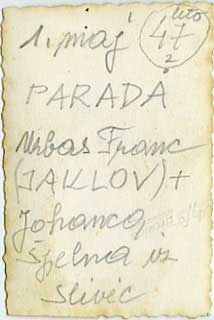 leto
1. maj 47
2
PARADA
Urbas Franc
(JAKLOV) +
Johanca
Špelna iz
Slivic